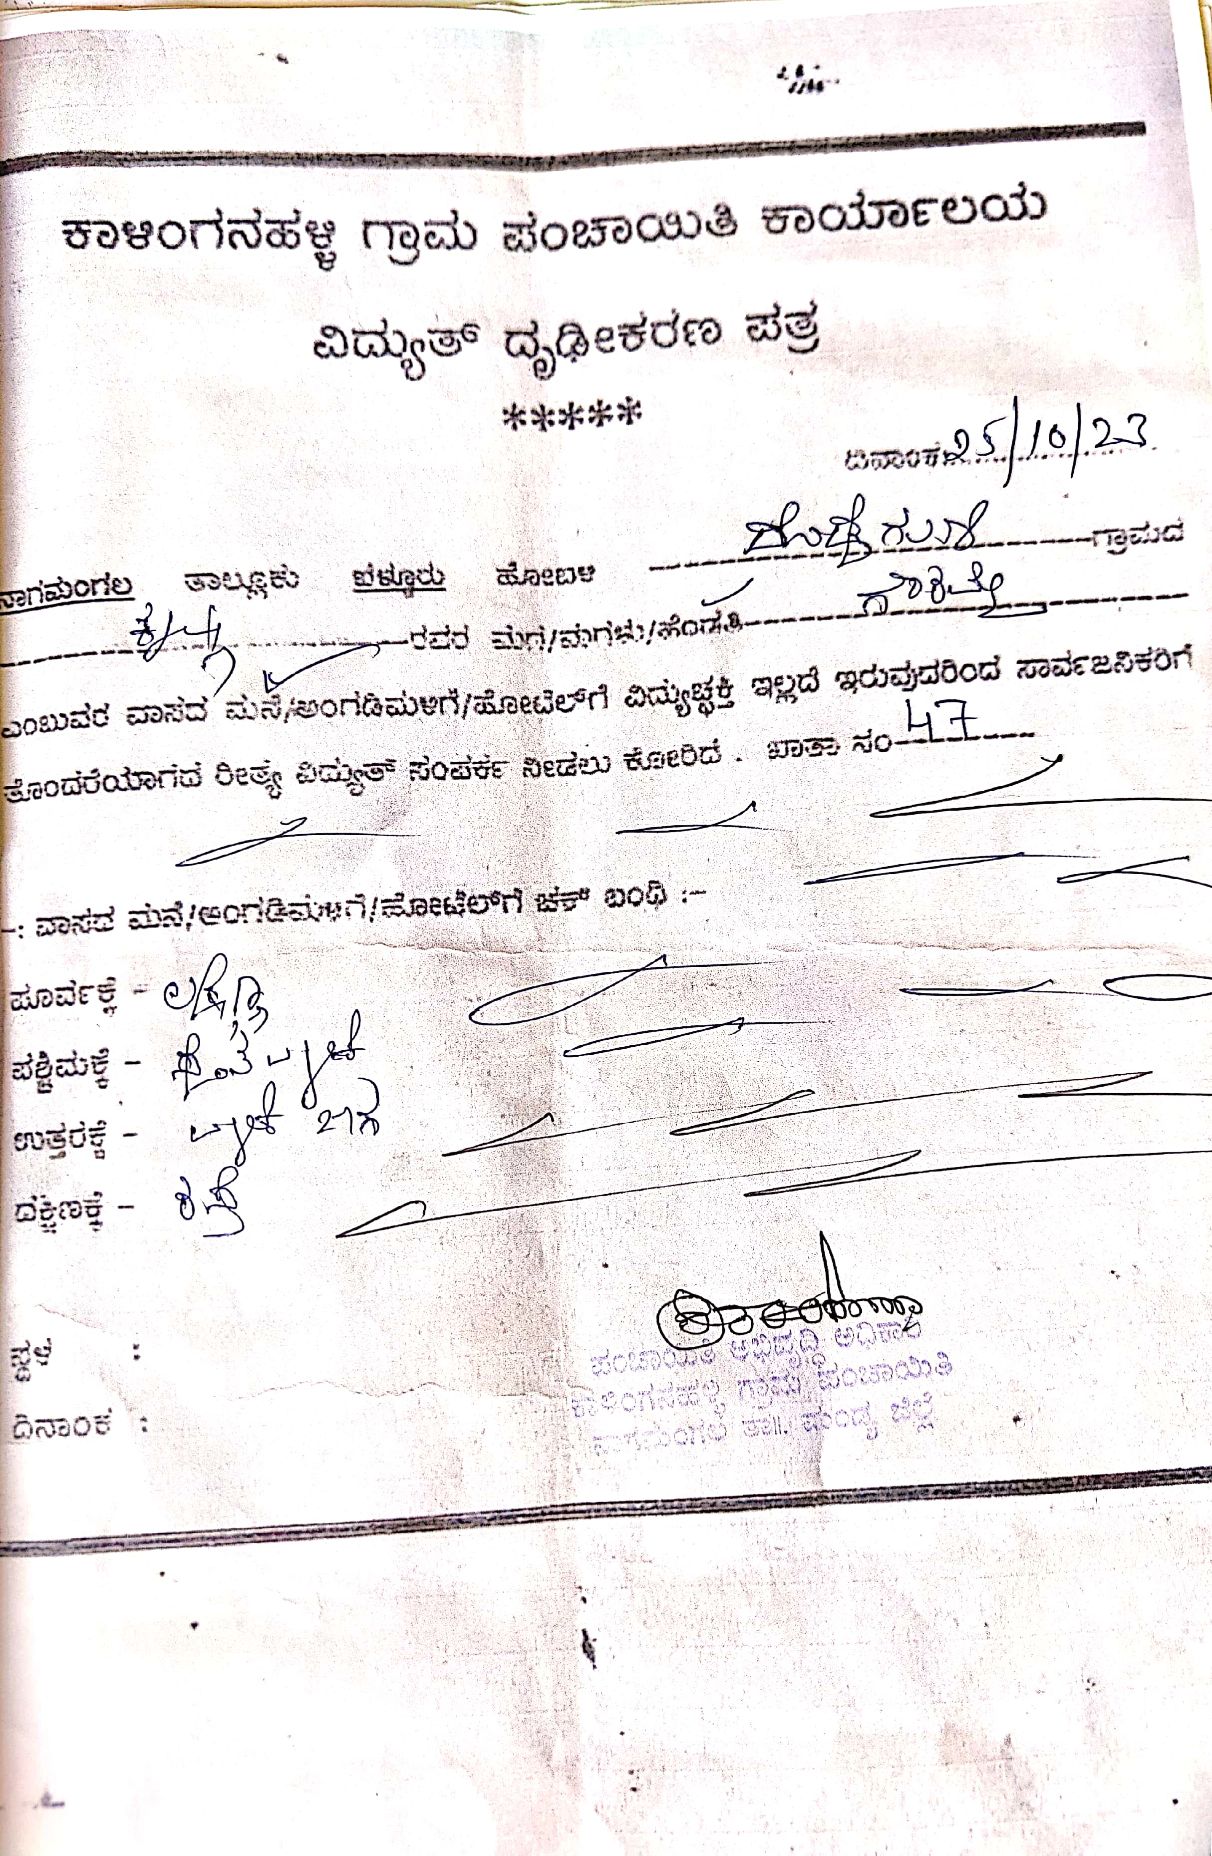 ಕಾಳಿಂಗನಹಳ್ಳಿ ಗ್ರಾಮ ಪಂಚಾಯಿತಿ ಕಾರ್ಯಾಲಯ
ವಿದ್ಯುತ್ ದೃಢೀಕರಣ ಪತ್ರ
*****
ದಿನಾಂಕ 25/10/23
ನಾಗಮಂಗಲ ತಾಲ್ಲೂಕು ಬೆಳ್ಳೂರು ಹೋಬಳಿ ಗ್ರಾಮದ
ರವರ ಮಗ/ಮಗಳು/ಹೆಂಡತಿ
ಎಂಬುವರ ವಾಸದ ಮನೆ/ಅಂಗಡಿಮಳಿಗೆ/ಹೋಟೆಲ್‌ಗೆ ವಿದ್ಯುಚ್ಛಕ್ತಿ ಇಲ್ಲದೆ ಇರುವುದರಿಂದ ಸಾರ್ವಜನಿಕರಿಗೆ
ತೊಂದರೆಯಾಗದ ರೀತ್ಯ ವಿದ್ಯುತ್ ಸಂಪರ್ಕ ನೀಡಲು ಕೋರಿದೆ . ಖಾತಾ ನಂ 47
-: ವಾಸದ ಮನೆ/ಅಂಗಡಿಮಳಿಗೆ/ಹೋಟೆಲ್‌ಗೆ ಚಕ್ ಬಂಧಿ :-
ಪೂರ್ವಕ್ಕೆ -
ಪಶ್ಚಿಮಕ್ಕೆ -
ಉತ್ತರಕ್ಕೆ -
ದಕ್ಷಿಣಕ್ಕೆ - ರಸ್ತೆ
ಸ್ಥಳ :
ದಿನಾಂಕ :
ಪಂಚಾಯಿತಿ ಅಭಿವೃದ್ಧಿ ಅಧಿಕಾರಿ
ಕಾಳಿಂಗನಹಳ್ಳಿ ಗ್ರಾಮ ಪಂಚಾಯಿತಿ
ನಾಗಮಂಗಲ ತಾ||. ಮಂಡ್ಯ ಜಿಲ್ಲೆ